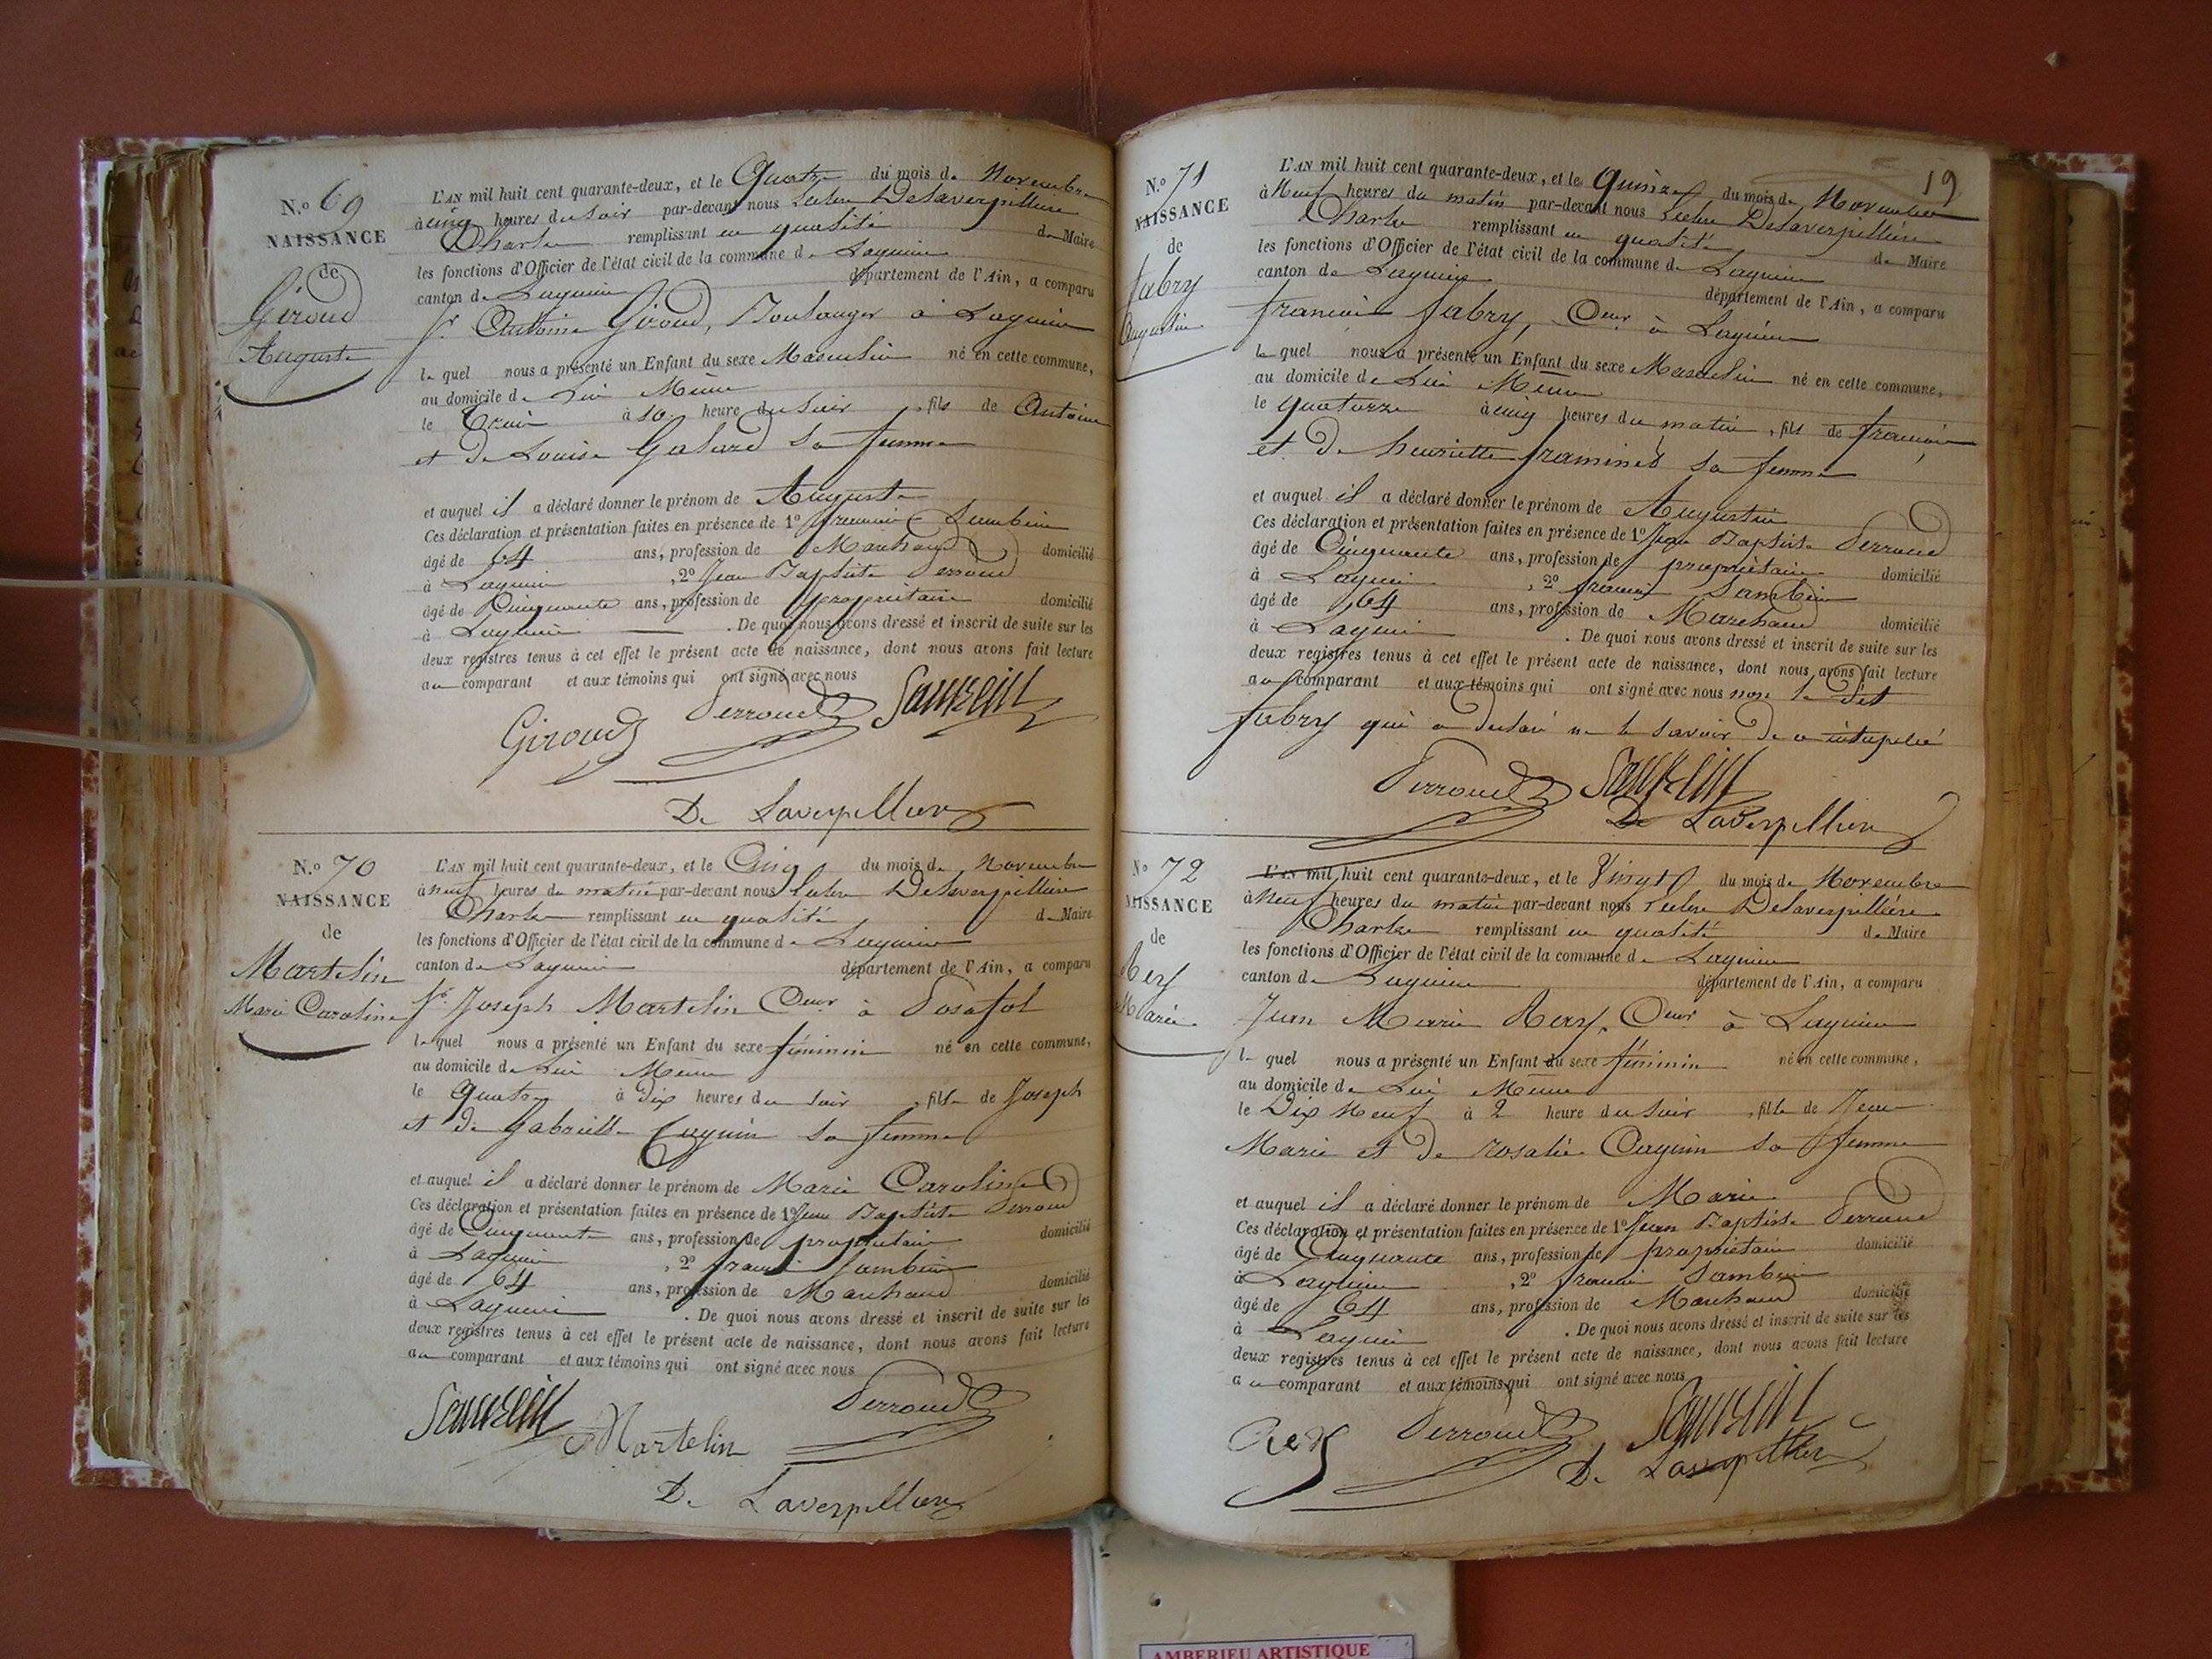 N.º 69
NAISSANCE
de
Giroud
Auguste
L'AN mil huit cent quarante-deux, et le Quatre du mois de Novembre
à cinq heures du soir par-devant nous Delaverpilliere
Charles remplissant en qualité de Maire
les fonctions d'Officier de l'état civil de la commune de Lagnieu
canton de Lagnieu département de l'Ain, a comparu
Antoine Giroud, Boulanger à Lagnieu
lequel nous a présenté un Enfant du sexe Masculin né en cette commune,
au domicile de Lui Même
le Trois à 10 heure du soir, fils de Antoine
et de Louise sa femme
et auquel il a déclaré donner le prénom de Auguste
Ces déclaration et présentation faites en présence de 1º françois Sambin
âgé de 64 ans, profession de Marchand domicilié
à Lagnieu, 2º Jean Baptiste Perroud
âgé de Cinquante ans, profession de propriétaire domicilié
à Lagnieu. De quoi nous avons dressé et inscrit de suite sur les
deux registres tenus à cet effet le présent acte de naissance, dont nous avons fait lecture
au comparant et aux témoins qui ont signé avec nous
Giroud Perroud Sambin
De Laverpilliere
N.º 70
NAISSANCE
de
Martelin
Marie Caroline
L'AN mil huit cent quarante-deux, et le Cinq du mois de Novembre
à neuf heures du matin par-devant nous Delaverpilliere
Charles remplissant en qualité de Maire
les fonctions d'Officier de l'état civil de la commune de Lagnieu
canton de Lagnieu département de l'Ain, a comparu
Joseph Martelin Cur à Posafol
lequel nous a présenté un Enfant du sexe féminin né en cette commune,
au domicile de Lui Même
le Quatre à Dix heures du soir, fille de Joseph
et de Gabrielle Cuynin sa femme
et auquel il a déclaré donner le prénom de Marie Caroline
Ces déclaration et présentation faites en présence de 1º Jean Baptiste Perroud
âgé de Cinquante ans, profession de propriétaire domicilié
à Lagnieu, 2º françois Sambin
âgé de 64 ans, profession de Marchand domicilié
à Lagnieu. De quoi nous avons dressé et inscrit de suite sur les
deux registres tenus à cet effet le présent acte de naissance, dont nous avons fait lecture
au comparant et aux témoins qui ont signé avec nous
Sambin Martelin Perroud
De Laverpilliere
19
N.º 71
NAISSANCE
de
fabry
Augustin
L'AN mil huit cent quarante-deux, et le Quinze du mois de Novembre
à Neuf heures du matin par-devant nous Delaverpilliere
Charles remplissant en qualité de Maire
les fonctions d'Officier de l'état civil de la commune de Lagnieu
canton de Lagnieu département de l'Ain, a comparu
françois fabry, Cur à Lagnieu
lequel nous a présenté un Enfant du sexe Masculin né en cette commune,
au domicile de Lui Même
le quatorze à cinq heures du matin, fils de françois
et de henriette framinet sa femme
et auquel il a déclaré donner le prénom de Augustin
Ces déclaration et présentation faites en présence de 1º Jean Baptiste Perroud
âgé de Cinquante ans, profession de propriétaire domicilié
à Lagnieu, 2º françois Sambin
âgé de 64 ans, profession de Marchand domicilié
à Lagnieu. De quoi nous avons dressé et inscrit de suite sur les
deux registres tenus à cet effet le présent acte de naissance, dont nous avons fait lecture
au comparant et aux témoins qui ont signé avec nous non le dit
fabry qui a déclaré ne le savoir de ce interpelé
Perroud Sambin
De Laverpilliere
N.º 72
NAISSANCE
de
Rey
Marie
L'AN mil huit cent quarante-deux, et le Vingt du mois de Novembre
à Neuf heures du matin par-devant nous Delaverpilliere
Charles remplissant en qualité de Maire
les fonctions d'Officier de l'état civil de la commune de Lagnieu
canton de Lagnieu département de l'Ain, a comparu
Jean Marie Rey, Cur à Lagnieu
lequel nous a présenté un Enfant du sexe féminin né en cette commune,
au domicile de Lui Même
le Dix Neuf à 2 heure du soir, fille de Jean
Marie et de rosalie Cuynin sa femme
et auquel il a déclaré donner le prénom de Marie
Ces déclaration et présentation faites en présence de 1º Jean Baptiste Perroud
âgé de Cinquante ans, profession de propriétaire domicilié
à Lagnieu, 2º françois Sambin
âgé de 64 ans, profession de Marchand domicilié
à Lagnieu. De quoi nous avons dressé et inscrit de suite sur les
deux registres tenus à cet effet le présent acte de naissance, dont nous avons fait lecture
au comparant et aux témoins qui ont signé avec nous
Rey Perroud Sambin
De Laverpilliere
AMBERIEU ARTISTIQUE